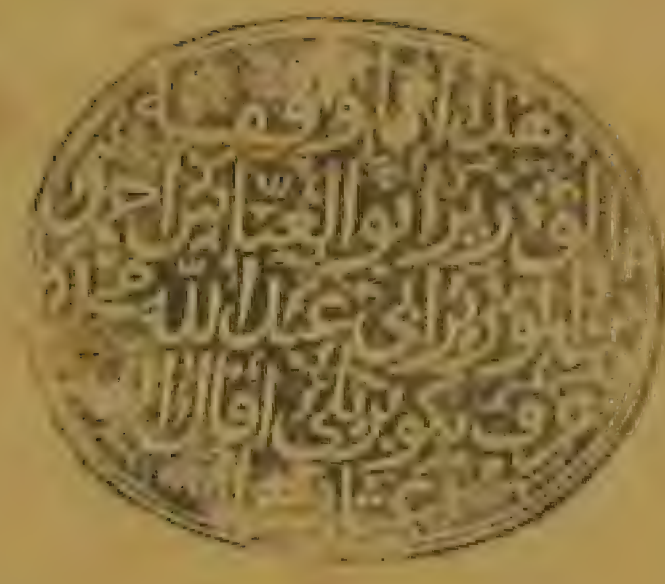 هذا ما وقفه
الوزير ابو العباس احمد بن
الوزير ابي عبد الله محمد
عرف بكوبريلي اقال الله
عثارهما